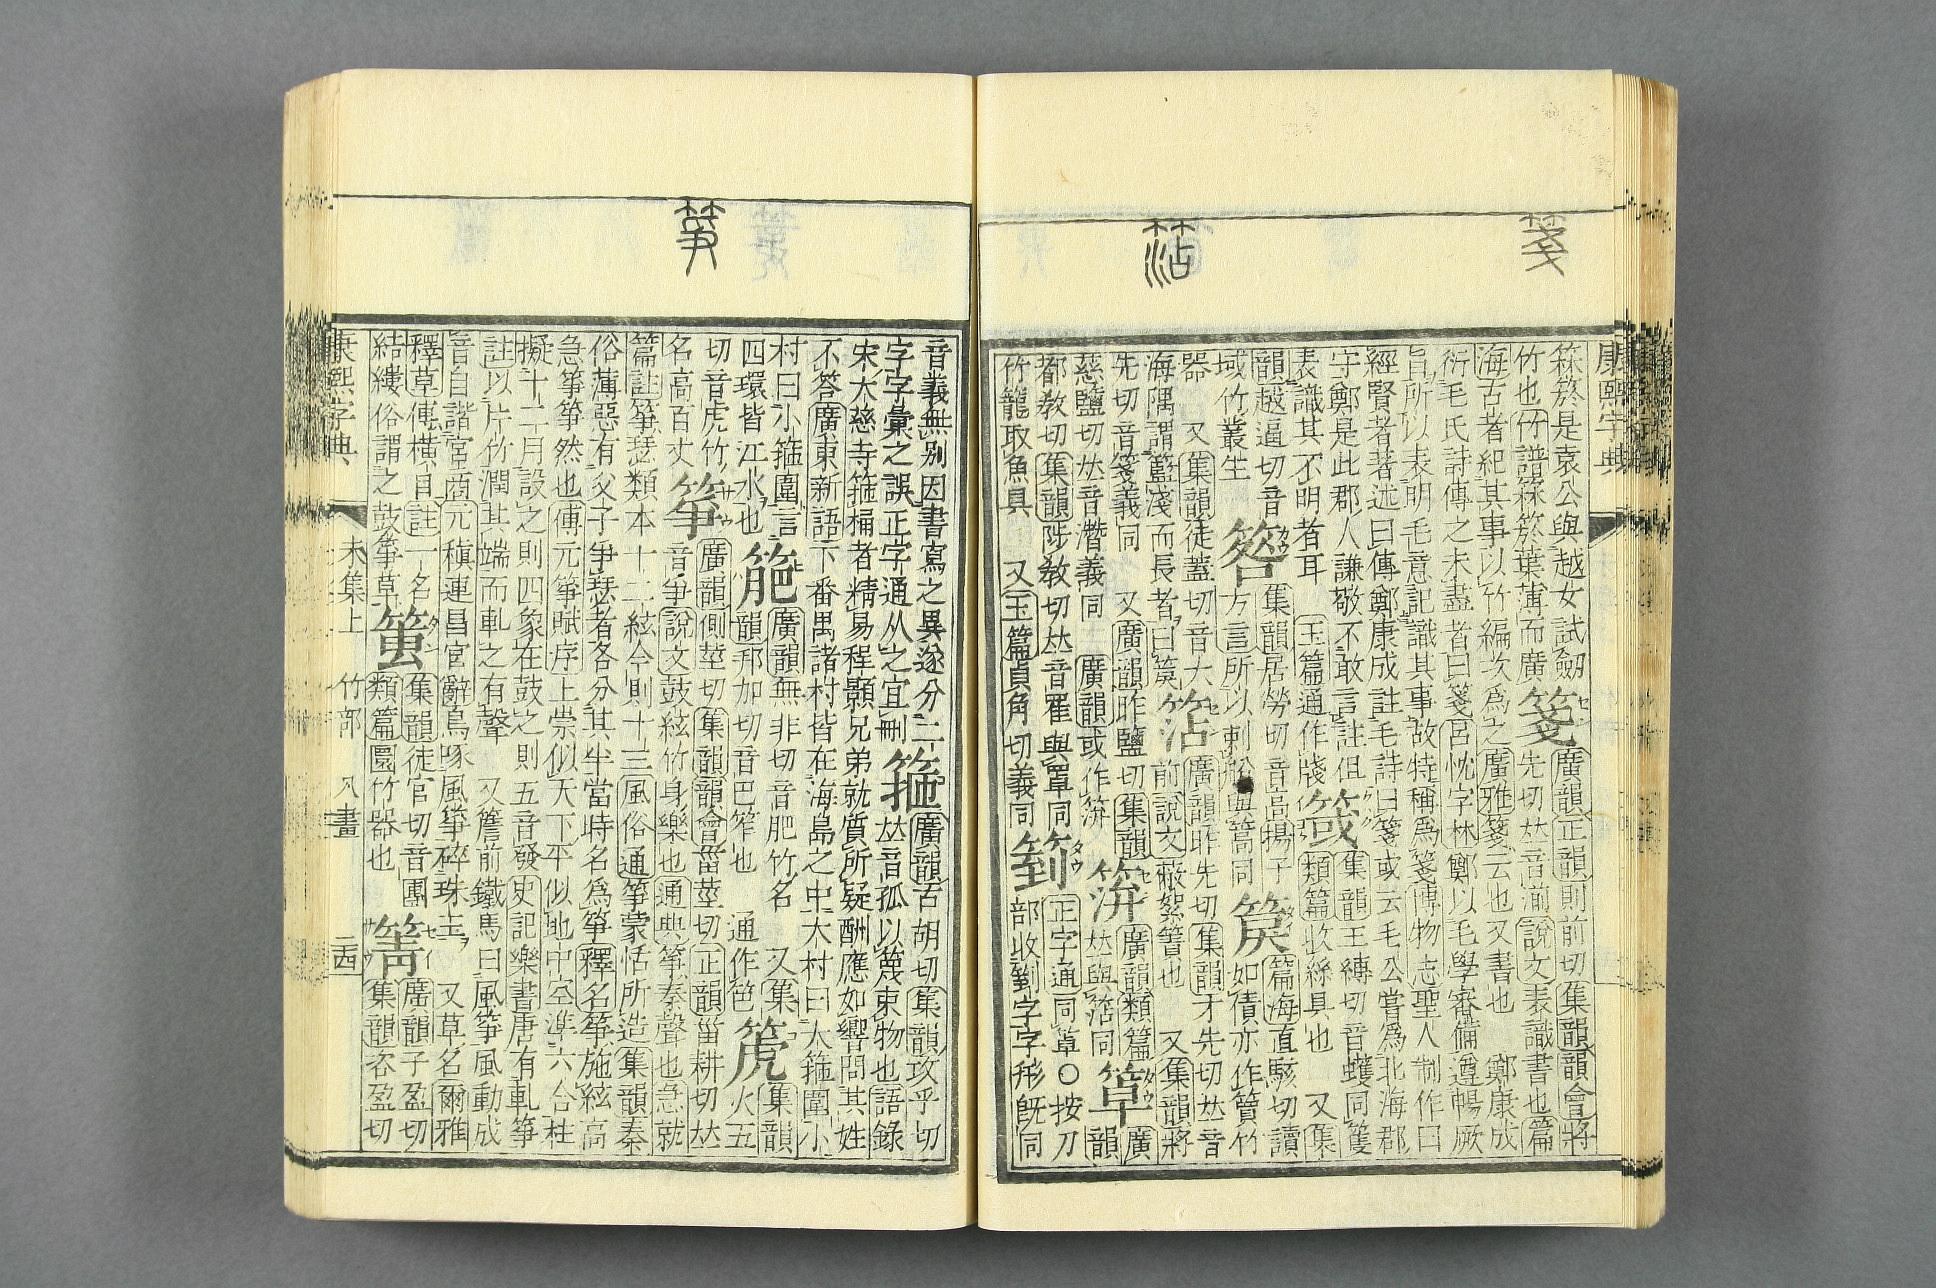 箋
康熙字典
箖箊是袁公與越女試劒
竹也竹譜箖箊葉薄而廣
箋
廣韻正韻則前切集韻韻會將
先切𠀤音湔說文表識書也篇
海古者紀其事以竹編次爲之廣雅箋云也又書也 鄭康成
衍毛氏詩傳之未盡者曰箋呂忱字林鄭以毛學審備遵暢厥
旨所以表明毛意記識其事故特稱爲箋博物志聖人制作曰
經賢者著述曰傳鄭康成註毛詩曰箋或云毛公嘗爲北海郡
守鄭是此郡人謙敬不敢言註但
表識其不明者耳 玉篇通作牋
集韻王縛切音蠖同籆
類篇收絲具也 又集
韻越逼切音
域竹叢生
集韻居勞切音高揚子
方言所以刺船與篙同
篇海直駭切讀
如積亦作簀竹
器 又集韻徒蓋切音大
海隅謂籃淺而長者曰
廣韻昨先切集韻才先切𠀤音
前說文蔽絮簀也 又集韻將
先切音箋義同 又廣韻昨鹽切集韻
慈鹽切𠀤音潛義同 廣韻或作
廣韻類篇
𠀤與同
廣
韻
都敎切集韻陟敎切𠀤音罩與罩同
竹籠取魚具 又玉篇貞角切義同
箌
正字通同○按刀
部收箌字字形旣同
箏
音義無別因書寫之異遂分二
字字彙之誤正字通从之宜刪
箍
廣韻古胡切集韻攻乎切
𠀤音孤以篾束物也語錄
宋大慈寺箍桶者精易程顥兄弟就質所疑酬應如響問其姓
不答廣東新語下番禺諸村皆在海島之中大村曰大箍圍小
村曰小箍圍言
四環皆江水也
廣韻無非切音肥竹名 又集
韻邦加切音巴笮也 通作笆
箎
集韻
火五
切音虎竹
名高百丈
箏
廣韻側莖切集韻韻會甾莖切正韻甾耕切𠀤
音爭說文鼓絃竹身樂也通典箏秦聲也急就
篇註箏瑟類本十二絃今則十三風俗通箏蒙恬所造集韻秦
俗薄惡有父子爭瑟者各分其半當時名爲箏釋名箏施絃高
急箏箏然也傅元箏賦序上崇似天下平似地中空準六合柱
擬十二月設之則四象在鼓之則五音發史記樂書唐有軋箏
註以片竹潤其端而軋之有聲 又簷前鐵馬曰風箏風動成
音自諧宮商元稹連昌宮辭鳥啄風箏碎珠玉 又草名爾雅
釋草傳橫目註一名
結縷俗謂之鼓箏草
集韻徒官切音團
類篇圜竹器也
箐
廣韻子盈切
集韻咨盈切
康熙字典
未集上 竹部 八畫
二四